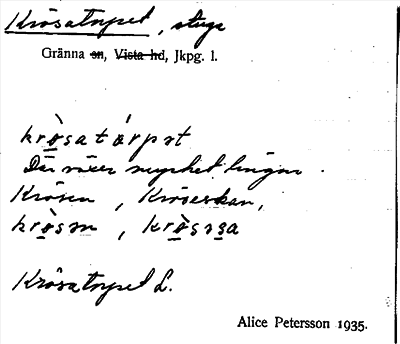 Krösatorpet, stuga
Gränna sn, Vista hd, Jkpg. l.
krò̱satórpət
Där växer mycket lingon.
Krösen, Kröserkan,
krò̱sɘn, krò̱sɘʂa
Krösatorpet L.
Alice Petersson 1935.